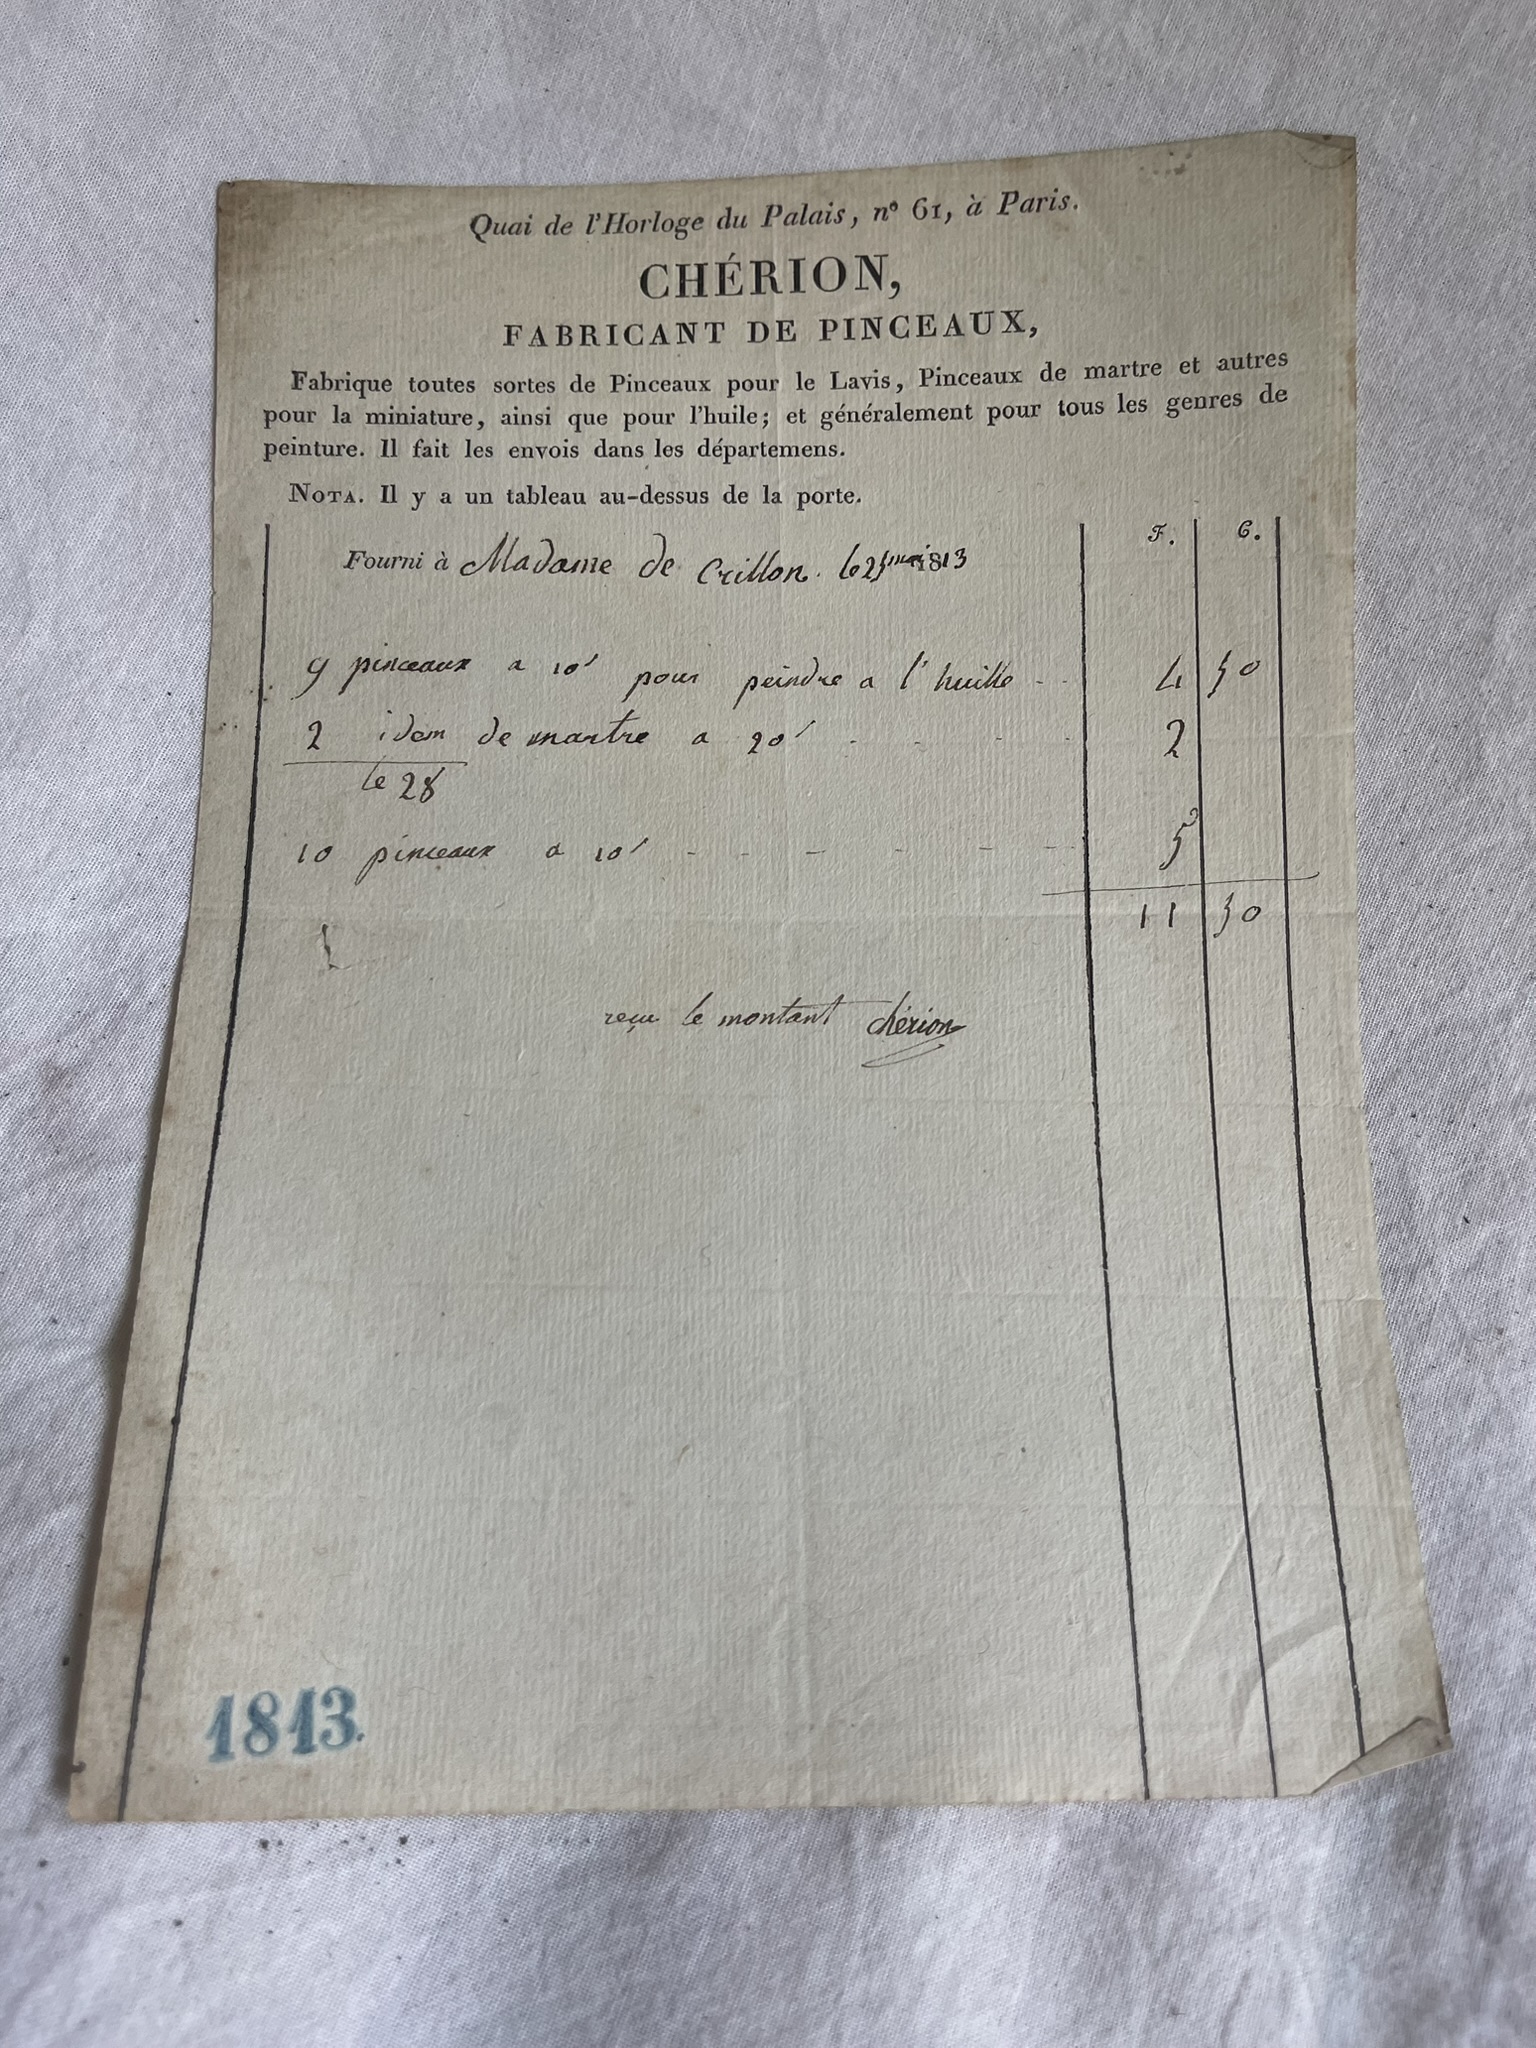 Quai de l'Horloge du Palais, nº 61, à Paris.
CHÉRION,
FABRICANT DE PINCEAUX,
Fabrique toutes sortes de Pinceaux pour le Lavis, Pinceaux de martre et autres
pour la miniature, ainsi que pour l'huile; et généralement pour tous les genres de
peinture. Il fait les envois dans les départemens.
NOTA. Il y a un tableau au-dessus de la porte.
F. C.
Fourni à Madame de Crillon. le 25 mai 1813
9 pinceaux a 10s pour peindre a l'huille - - 4 50
2 idem de martre a 20s - - - - 2
le 28
10 pinceaux a 10s - - - - - - 5
11 50
reçu le montant chérion
1813.